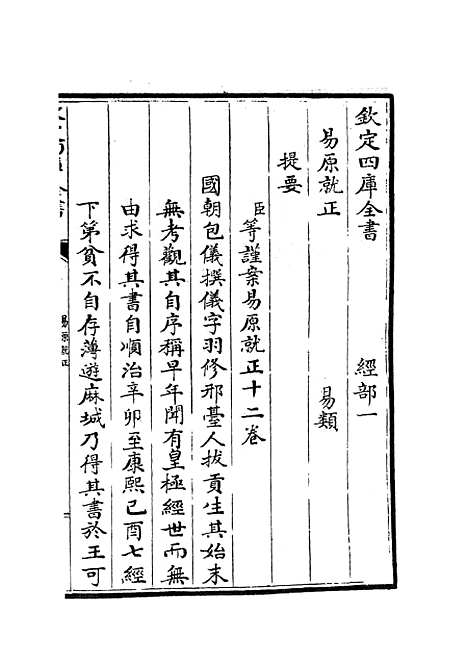 欽定四庫全書　經部一
易原就正　易類
提要
臣等謹案易原就正十二卷
國朝包儀撰儀字羽修邢臺人拔貢生其始末
無考觀其自序稱早年聞有皇極經世而無
由求得其書自順治辛卯至康熙己酉七經
下第貧不自存薄遊麻城乃得其書於王可
易原就正